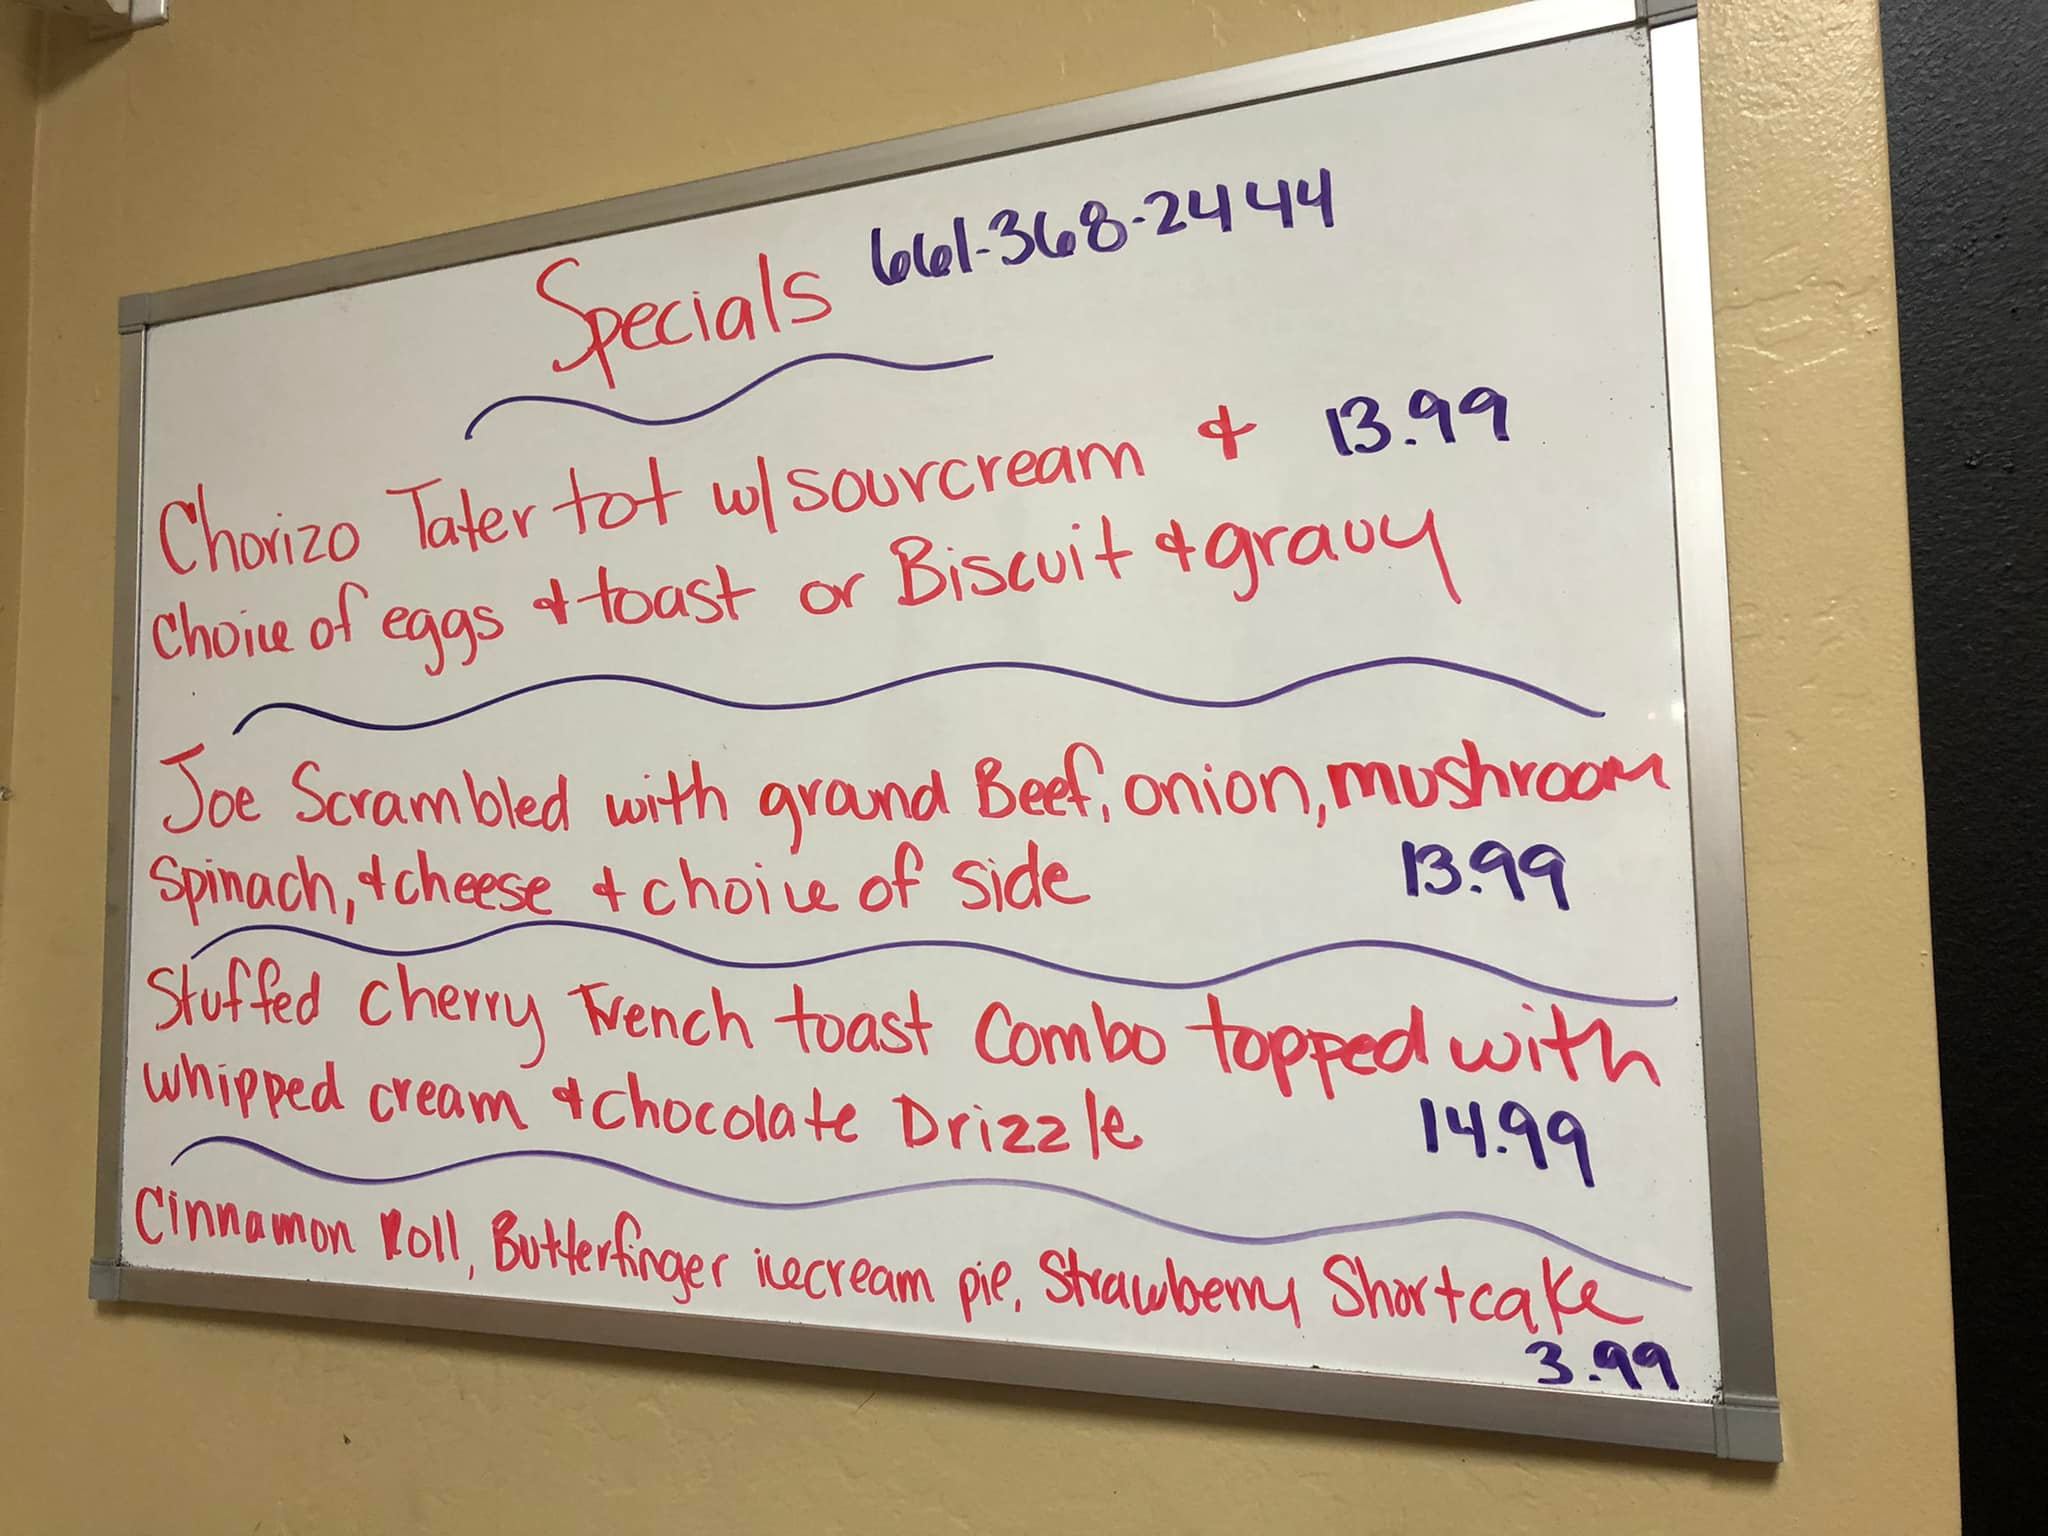 Specials 661-368-2444
Chorizo Tater tot w/sourcream & 13.99
Choice of eggs & toast or Biscuit & gravy
Joe Scrambled with ground Beef, onion, mushroom
Spinach, & cheese & choice of side 13.99
Stuffed cherry French toast Combo topped with
whipped cream & chocolate Drizzle 14.99
Cinnamon Roll, Butterfinger icecream pie, Strawberry Shortcake
3.99